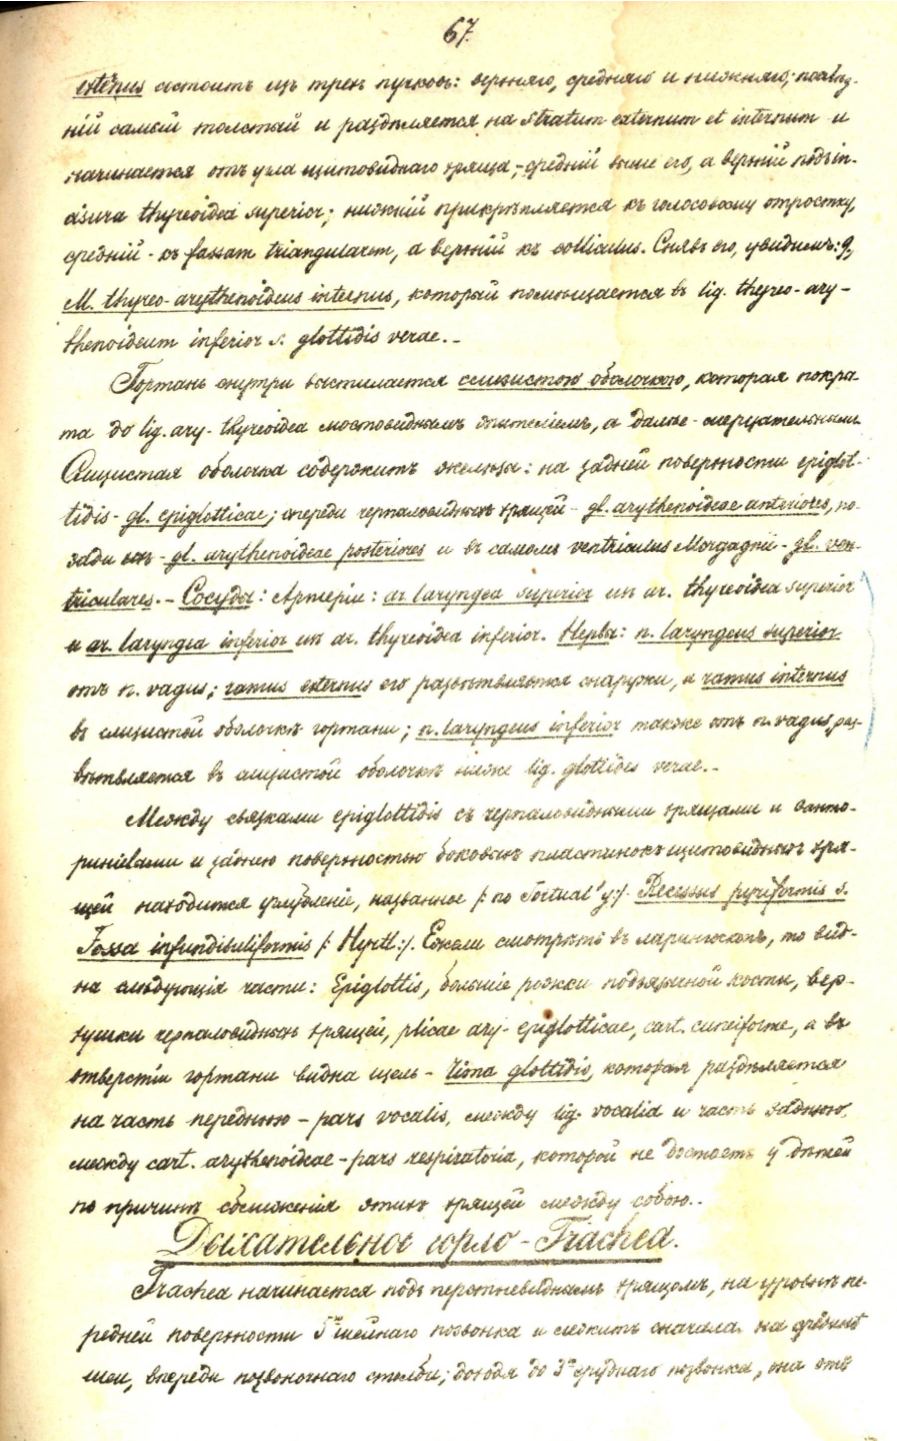 67.
externus состоитъ изъ трехъ пучковъ: верхняго, средняго и нижняго; послѣд-
ній самый толстый и раздѣляется на stratum externum et internum и
начинается отъ угла щитовиднаго хряща,- средній выше его, а верхній подъ in-
cisura thyreoidea superior; нижній прикрѣпляется къ голосовому отростку,
средній - къ fossam triangularem, а верхній къ colliculus. Снявъ его, увидимъ: 9,
M. thyreo-arythenoideus internus, который помѣщается въ lig. thyreo-ary-
thenoideum inferior s. glottidis verae.-
Гортань внутри выстилается слизистою оболочкою, которая покры-
та до lig. ary-thyreoidea мостовиднымъ эпителіемъ, а далѣе - мерцательнымъ.
Слизистая оболочка содержитъ железы: на задней поверхности epiglot-
tidis - gl. epiglotticae; спереди черпаловидныхъ хрящей - gl. arythenoideae anteriores, по-
зади ихъ - gl. arythenoideae posteriores и въ самомъ ventriculus Morgagnii - gl. ven-
triculares. - Сосуды: Артеріи: ar. laryngea superior изъ ar. thyreoidea superior
и ar. laryngea inferior изъ ar. thyreoidea inferior. Нервы: n. laryngeus superior
отъ n. vagus; ramus externus его развѣтвляется снаружи, а ramus internus
въ слизистой оболочкѣ гортани; n. laryngeus inferior также отъ n. vagus раз-
вѣтвляется въ слизистой оболочкѣ ниже lig. glottides verae.-
Между связками epiglottidis съ черпаловидными хрящами и санто-
риніевыми и заднею поверхностью боковыхъ пластинокъ щитовидныхъ хря-
щей находится углубленіе, названное /: по Tortual'у :/. Recessus pyriformis s.
Fossa infundibuliformis /: Hyrtl :/. Ежели смотрѣть въ ларингоскопъ, то вид-
на слѣдующія части: Epiglottis, большіе рожки подъязычной кости, вер-
хушки черпаловидныхъ хрящей, plicae ary-epiglotticae, cart. cuneiforme, а въ
отверстіи гортани видна щель - rima glottidis, которая раздѣляется
на часть переднюю - pars vocalis, между lig. vocalia и часть заднюю,
между cart. arythenoideae - pars respiratoria, которой не достаетъ у дѣтей
по причинѣ сближенія этихъ хрящей между собою..
Дыхательное горло - Trachea.
Trachea начинается подъ перстневиднымъ хрящомъ, на уровнѣ пе-
редней поверхности 5го шейнаго позвонка и лежитъ сначала на срединѣ
шеи, впереди позвоночнаго столба; доходя до 3го груднаго позвонка, она отъ